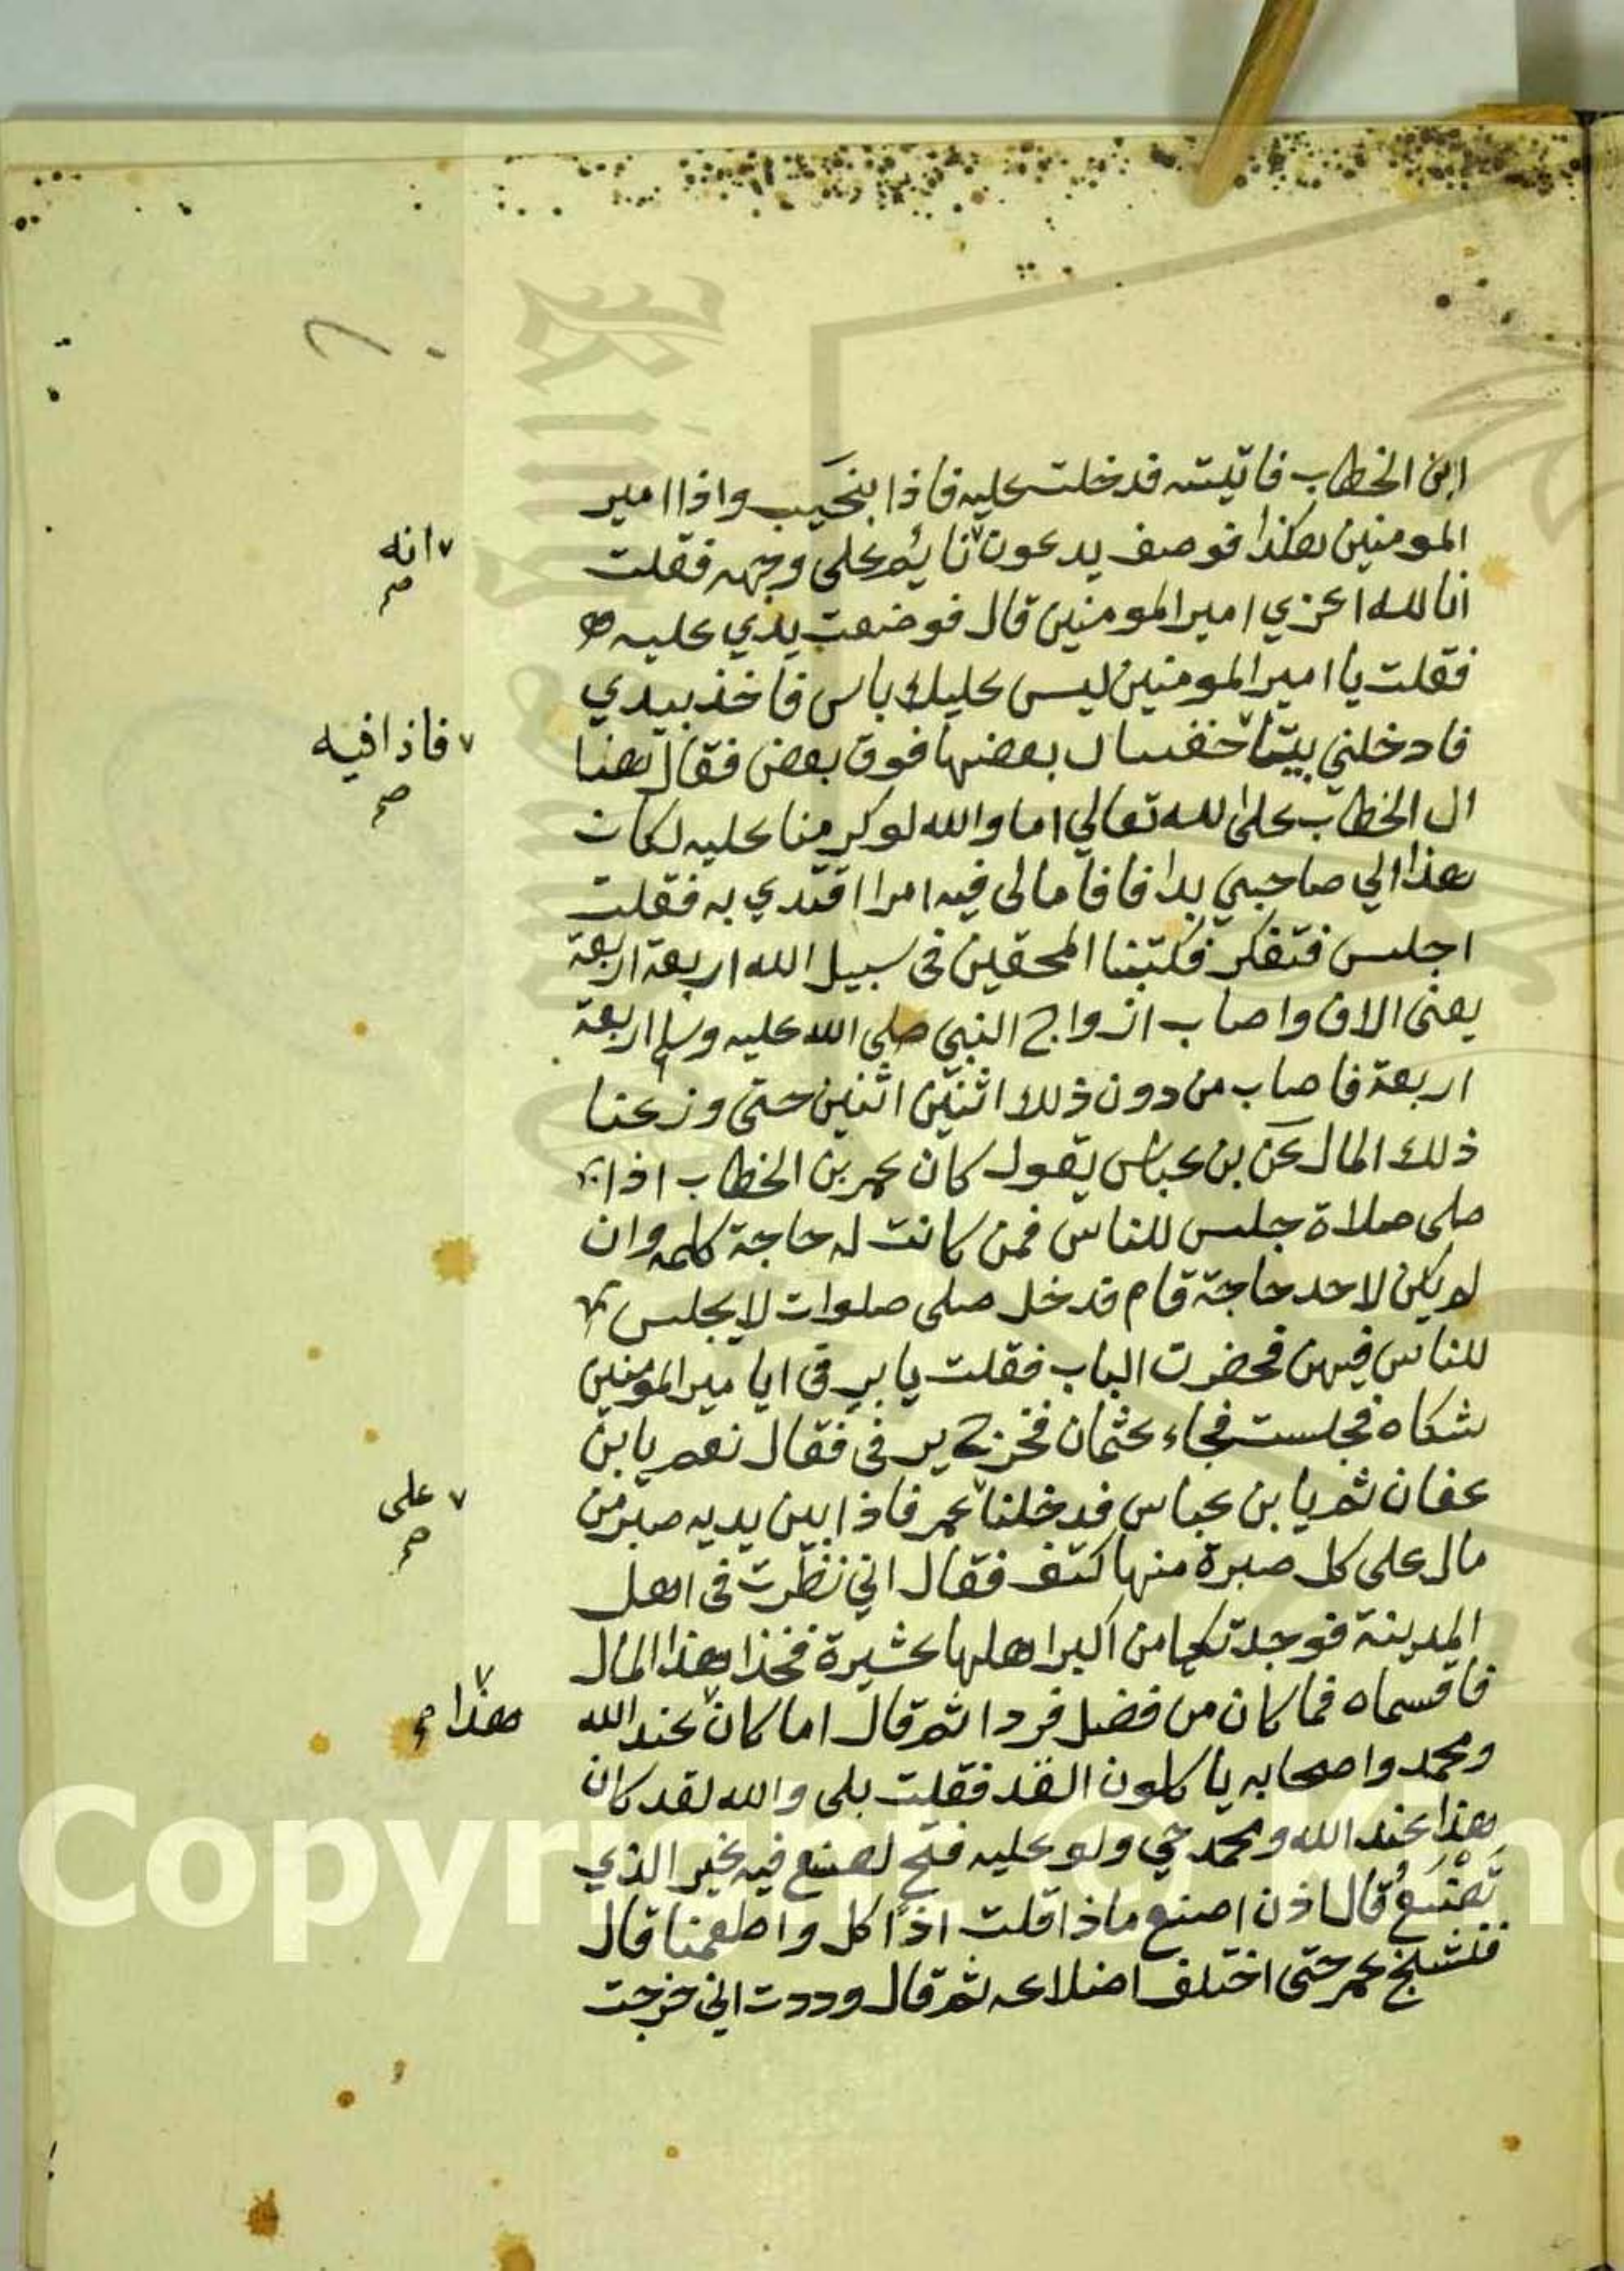 ابن الخطاب فاتيته فدخلت عليه فاذا بنحيب واذا امير
المومنين هكذا فوصف يدعون نايم على وجهه فقلت
انا لله اعزي امير المومنين قال فوضعت يدي عليه
فقلت يا امير المومنين ليس عليك باس فاخذ بيدي
فادخلني بيتا بعضها فوق بعض فقال هنا
ال الخطاب على الله تعالي اما والله لو كرمنا عليه لكان
هذا الي صاحبي بدا فاقاما لي فيه امرا اقتدي به فقلت
اجلس فتفكر فكتبنا المحقين في سبيل الله اربعة اربعة
يعنى الاف واصاب ازواج النبي صلي الله عليه وسلم اربعة
اربعة فاصاب من دون ذلك اثنين اثنين حتى وزعنا
ذلك المال عن بن عباس يقول كان عمر بن الخطاب اذا
صلى صلاة جلس للناس فمن كانت له حاجة كلمه وان
لم يكن لاحد حاجة قام فدخل صلى صلوات لا يجلس
للناس فيهن فحضرت الباب فقلت يا يرفى ابا مير المومنين
شكاه فجلست فجاء عثمان فخرج يرفى فقال نعم يا بن
عفان ثم يا بن عباس فدخلنا عمر فاذا بين يديه صبر من
مال على كل صبرة منها كتف فقال اني نظرت في اهل
المدينة فوجدتكما من اكبر اهلها عشيرة فخذا هذا المال
فاقسماه فما كان من فضل فردا ثم قال اما كان عند الله
ومحمد واصحابه ياكلون القد فقلت بلى والله لقد كان
هذا عند الله ومحمد حي ولو عليه فتح لصنع فيه غير الذي
تصنع قال اذن اصنع ماذا قلت اذا اكل واطعمنا قال
فنشنج عمر حتى اختلف اضلاعه ثم قال وددت اني خرجت
انه
صح
فاذا فيه
صح
على
صح
هذا